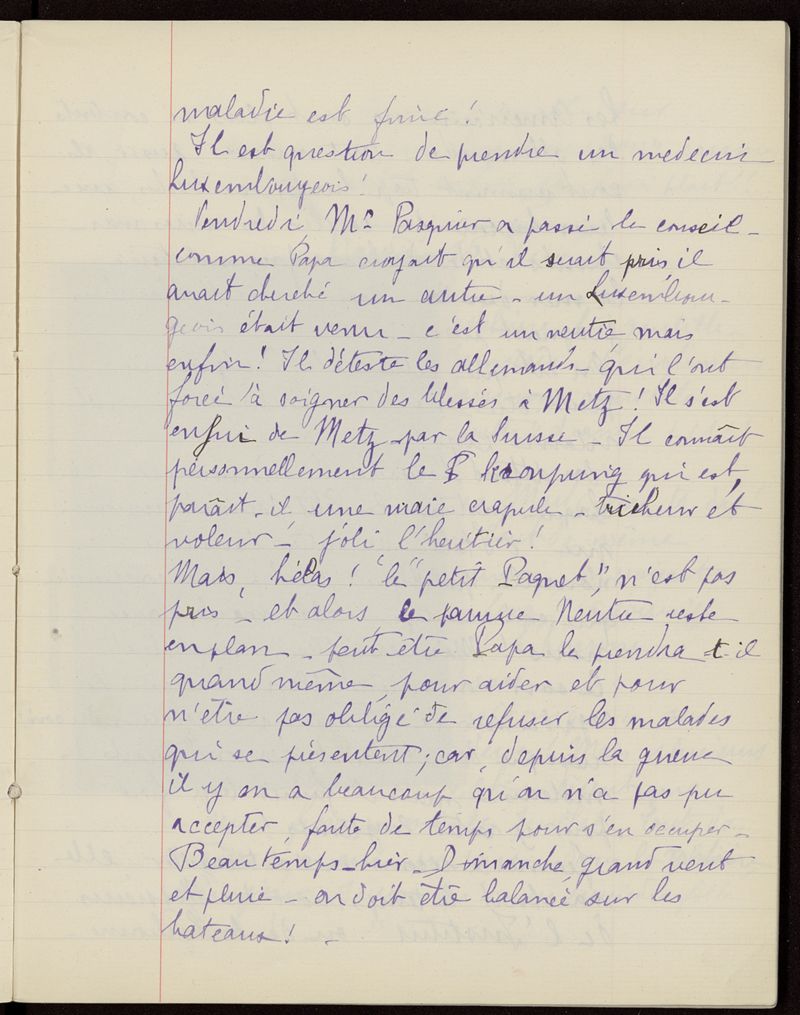 maladie est finie !
Il est question de prendre un medecin
Luxembourgeois !
Vendredi, Mr Pasquier a passé le conseil -
comme Papa croyait qu'il serait pris, il
avait cherché un autre - un Luxembour-
geois était venu - c'est un neutre, mais
enfin ! Il déteste les allemands - qui l'ont
forcé à soigner des blessés à Metz ! Il s'est
enfui de Metz par la Suisse - Il connaît
personnellement le Kronprinz qui est,
paraît-il, une vraie crapule - tricheur et
voleur - joli l'héritier !
Mais, hélas ! "le "petit Paquet", n'est pas
pris - et alors le pauvre Neutre reste
en plan - peut-être Papa le prendra t-il
quand même, pour aider et pour
n'être pas obligé de refuser les malades
qui se présentent ; car, depuis la guerre
il y en a beaucoup qu'on n'a pas pu
accepter, faute de temps pour s'en occuper -
Beau temps - hier - Dimanche, grand vent
et pluie - on doit être balancé sur les
bateaux ! -